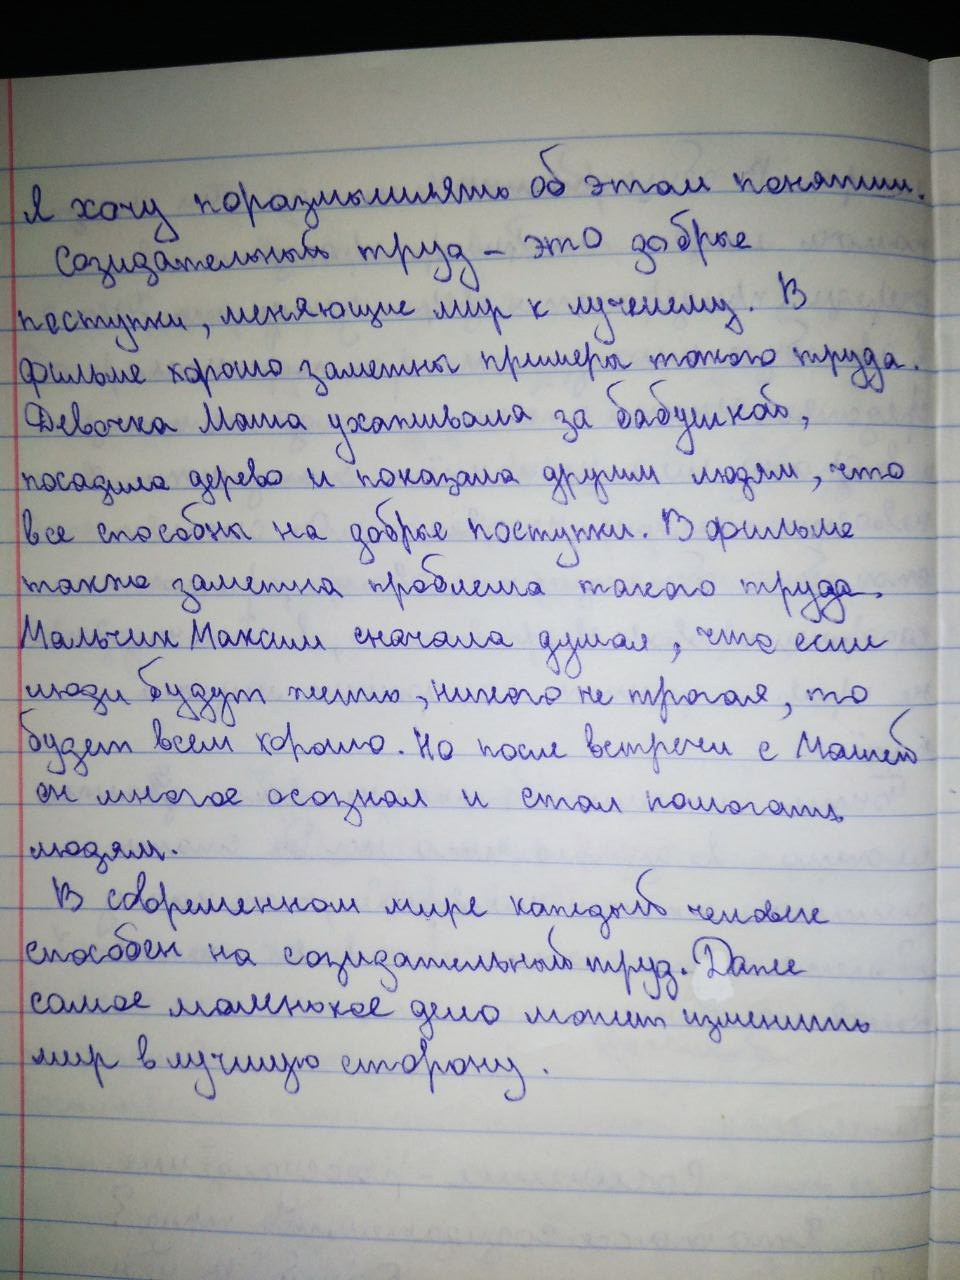 Я хочу поразмышлять об этом понятии.
Созидательный труд - это добрые
поступки, меняющие мир к лучшему. В
фильме хорошо заметны примеры такого труда.
Девочка Маша ухаживала за бабушкой,
посадила дерево и показала другим людям, что
все способны на добрые поступки. В фильме
также заметна проблема такого труда.
Мальчик Максим сначала думал, что если
люди будут жить, никого не трогая, то
будет всем хорошо. Но после встречи с Машей
он многое осознал и стал помогать
людям.
В современном мире каждый человек
способен на созидательный труд. Даже
самое маленькое дело может изменить
мир в лучшую сторону.